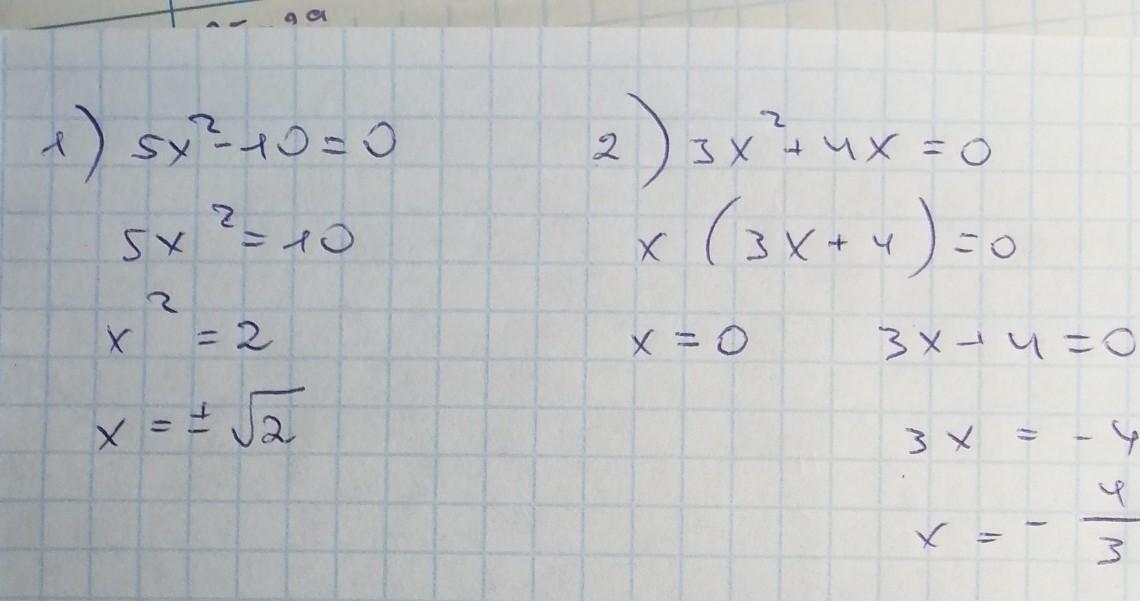 1) 5x² - 10 = 0
5x² = 10
x² = 2
x = ± √2
2) 3x² + 4x = 0
x (3x + 4) = 0
x = 0 3x + 4 = 0
3x = -4
x = - 4/3